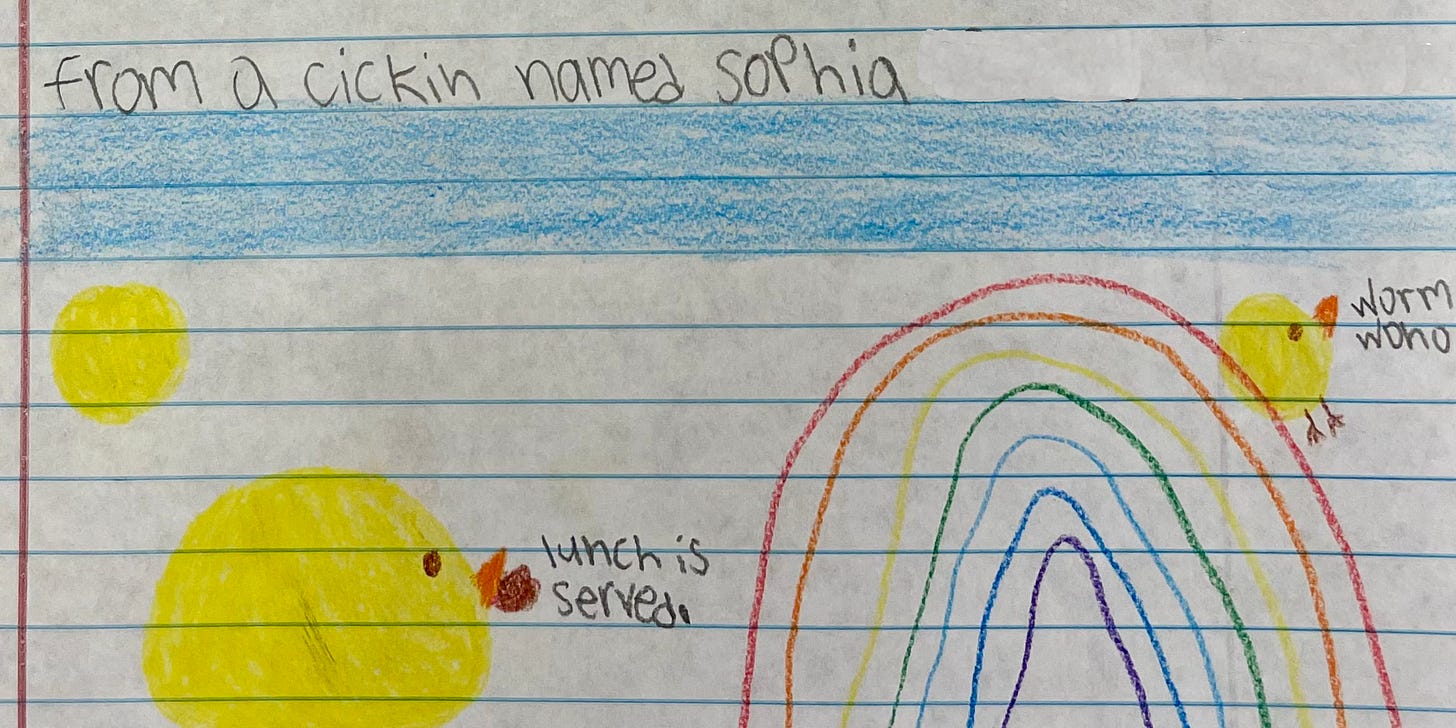 from a cickin named sophia
worm
woho
lunch is
served.